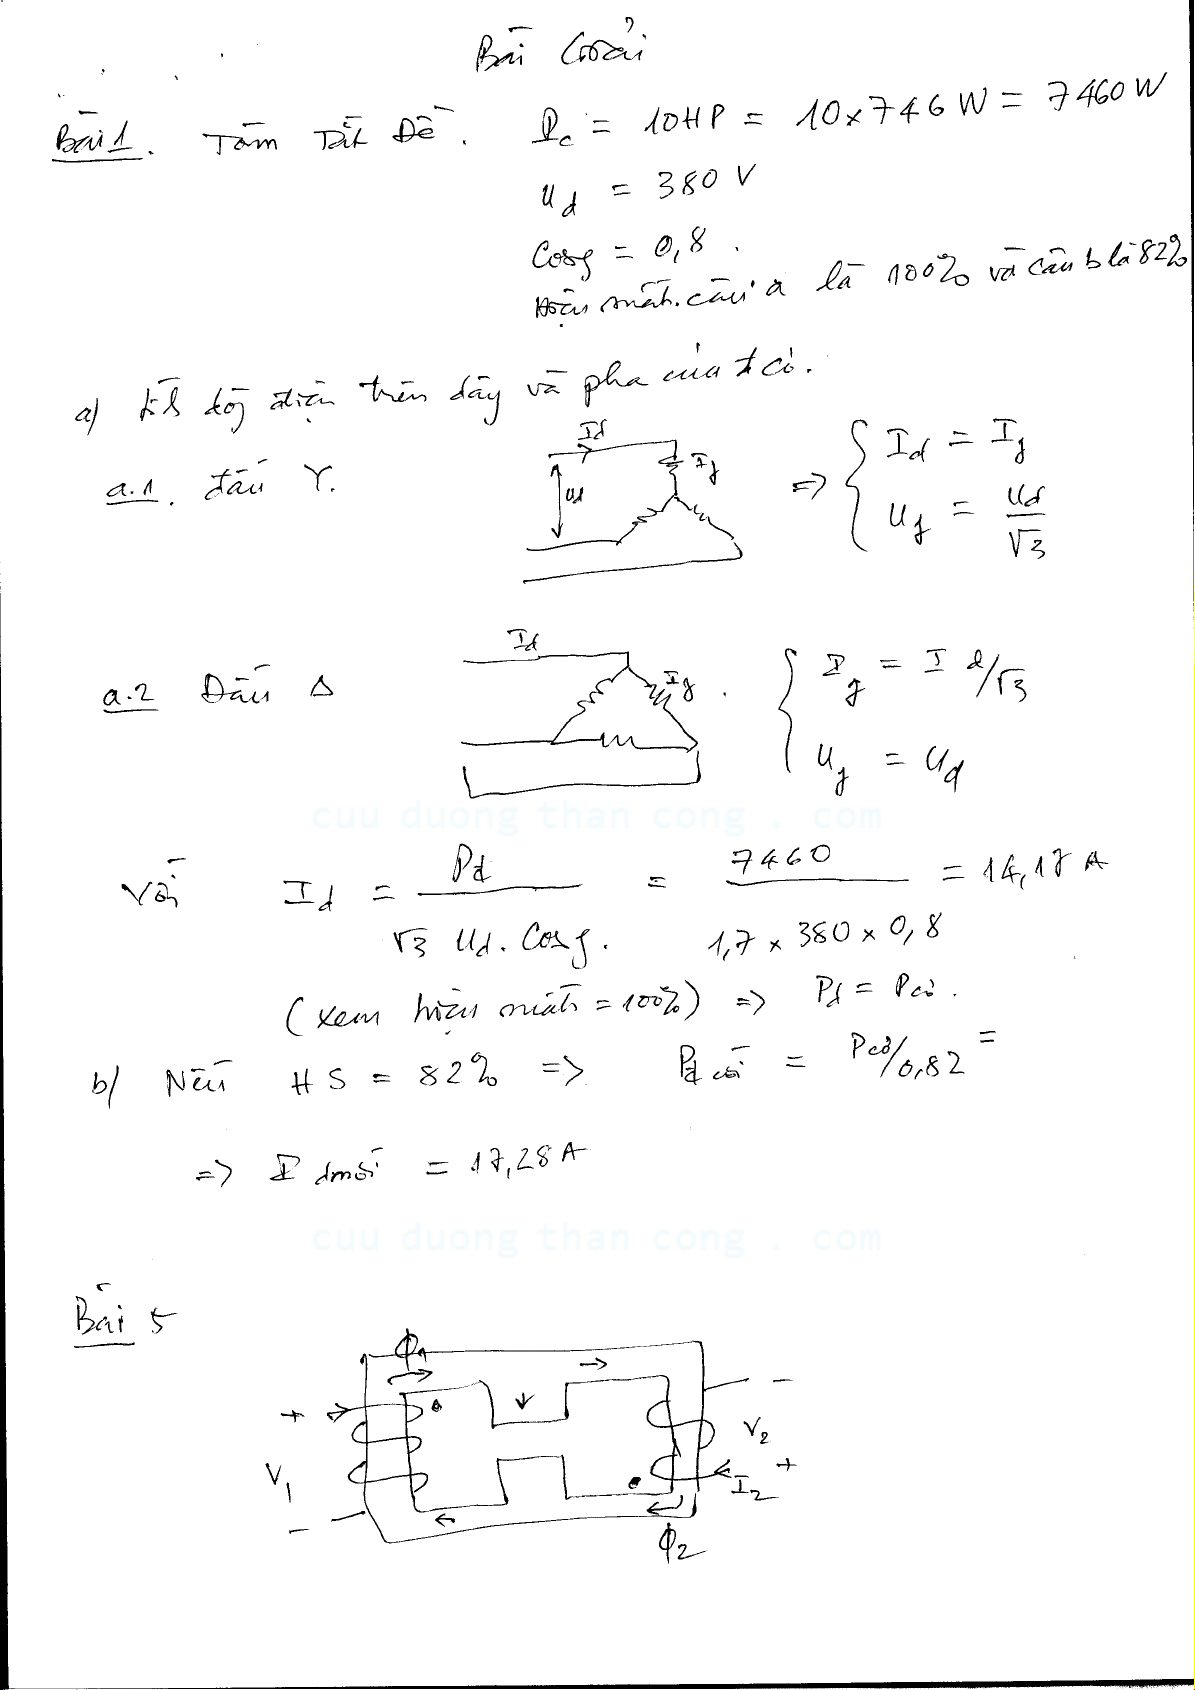 Bài Giải
Bài 1. Tóm Tắt Đề. Pc = 10HP = 10x746W = 7460W
Ud = 380 V
Cosφ = 0,8.
Hiệu suất câu a là 100% và câu b là 82%
a) dòng điện trên dây và pha của đ cơ.
a.1. đấu Y.
Id
Ud
If
=> { Id = If
Uf = Ud/√3
a.2 Đấu Δ
Id
If
{ If = Id/√3
Uf = Ud
cuu duong than cong . com
Với Id = Pd / √3 Ud. Cosφ. = 7460 / 1,7 x 380 x 0,8 = 14,17 A
(xem hiệu suất = 100%) => Pd = Pcơ.
b/ Nếu HS = 82% => Pd mới = Pcơ/0,82 =
=> I dmới = 17,28 A
cuu duong than cong . com
Bài 5
Φ1
+ -
V1 V2
- +
I2
Φ2